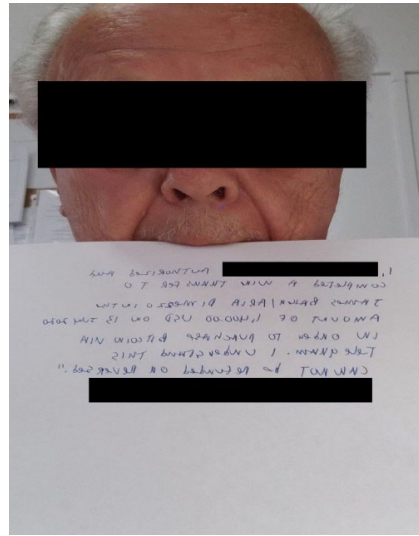 I, AUTHORIZED AND
COMPLETED A TRANSFER TO
/ARIA DIMEZZO IN
AMOUNT OF USD ON JULY 2020
IN ORDER TO PURCHASE BITCOIN VIA
TELEGRAM. I UNDERSTAND THIS
CANNOT BE REFUNDED OR REVERSED."